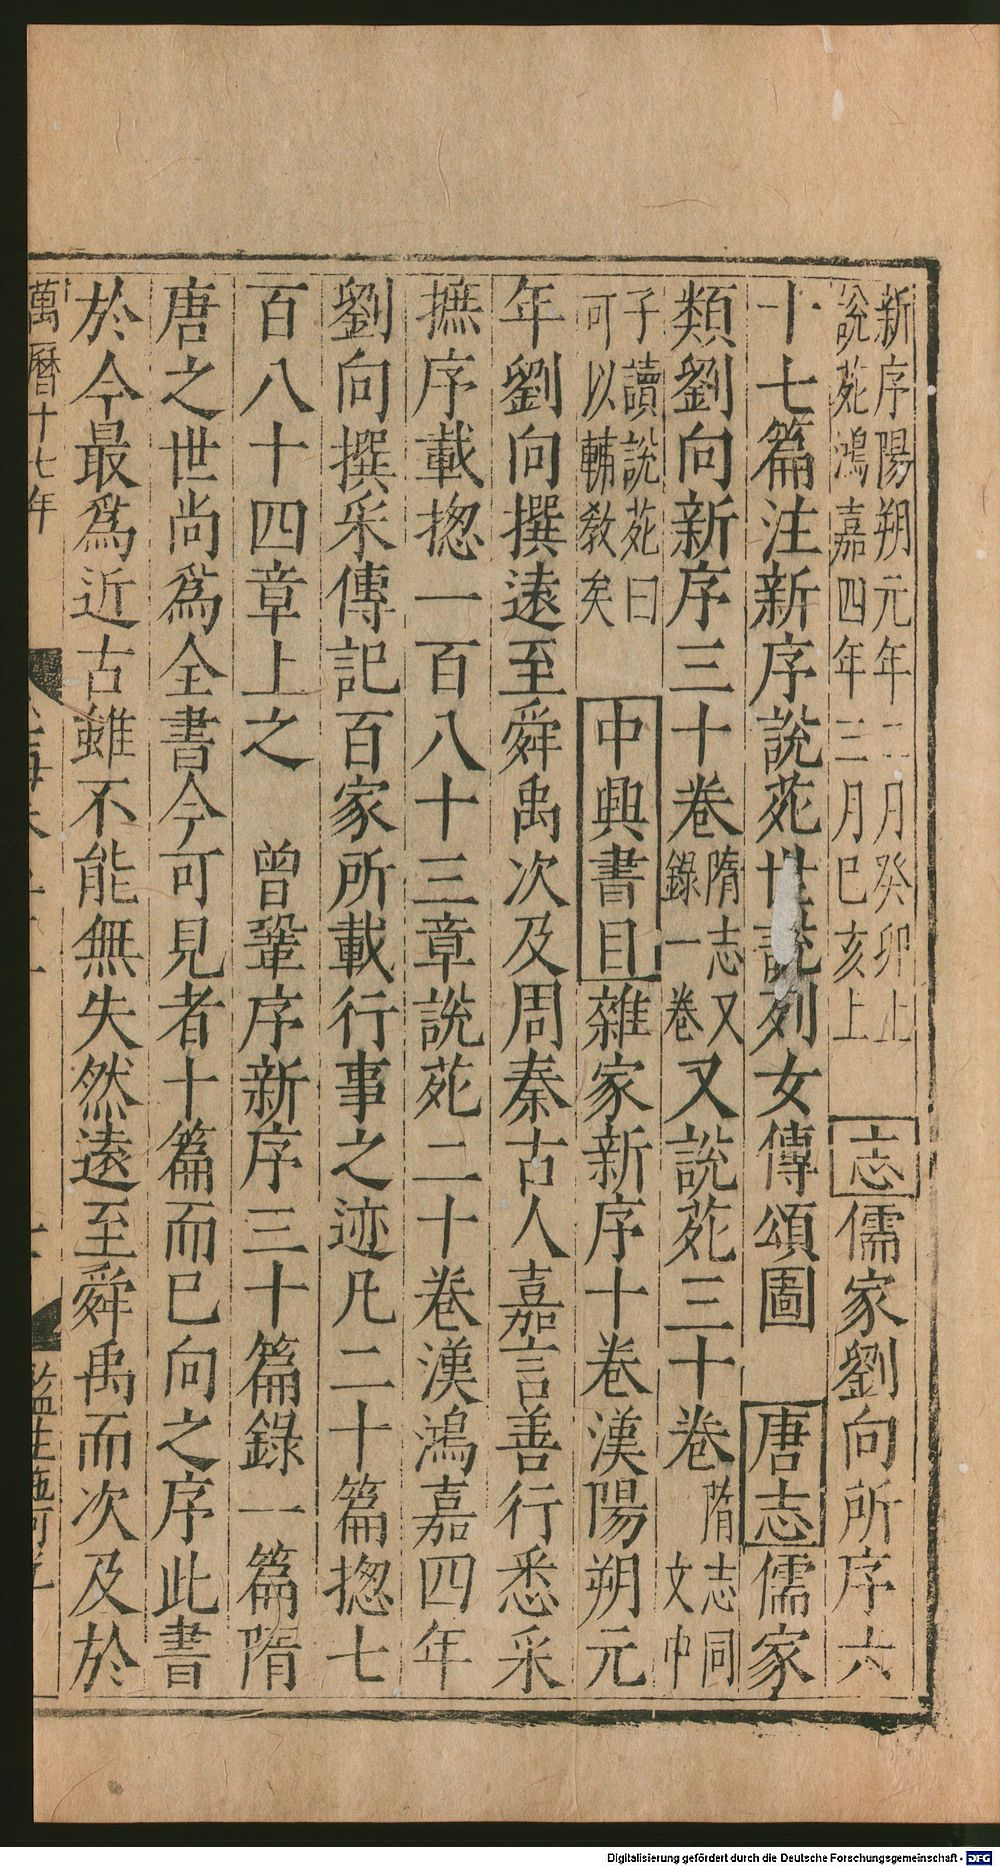 新序陽朔元年二月癸卯上
說苑鴻嘉四年三月巳亥上
志儒家劉向所序六
十七篇注新序說苑世說列女傳頌圖 唐志儒家
類劉向新序三十卷隋志又錄一卷又說苑三十卷隋志同文中
子讀說苑曰可以輔敎矣 中興書目雜家新序十卷漢陽朔元
年劉向撰遠至舜禹次及周秦古人嘉言善行悉采
摭序載揔一百八十三章說苑二十卷漢鴻嘉四年
劉向撰采傳記百家所載行事之迹凡二十篇揔七
百八十四章上之 曾鞏序新序三十篇錄一篇隋
唐之世尚爲全書今可見者十篇而巳向之序此書
於今最爲近古雖不能無失然遠至舜禹而次及於
萬曆十七年
Digitalisierung gefördert durch die Deutsche Forschungsgemeinschaft - DFG